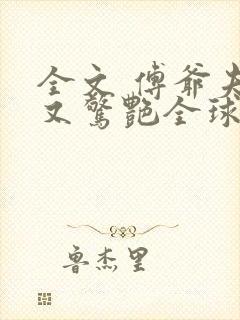 全文 傅爷夫
又驚艷全球
鲁杰里